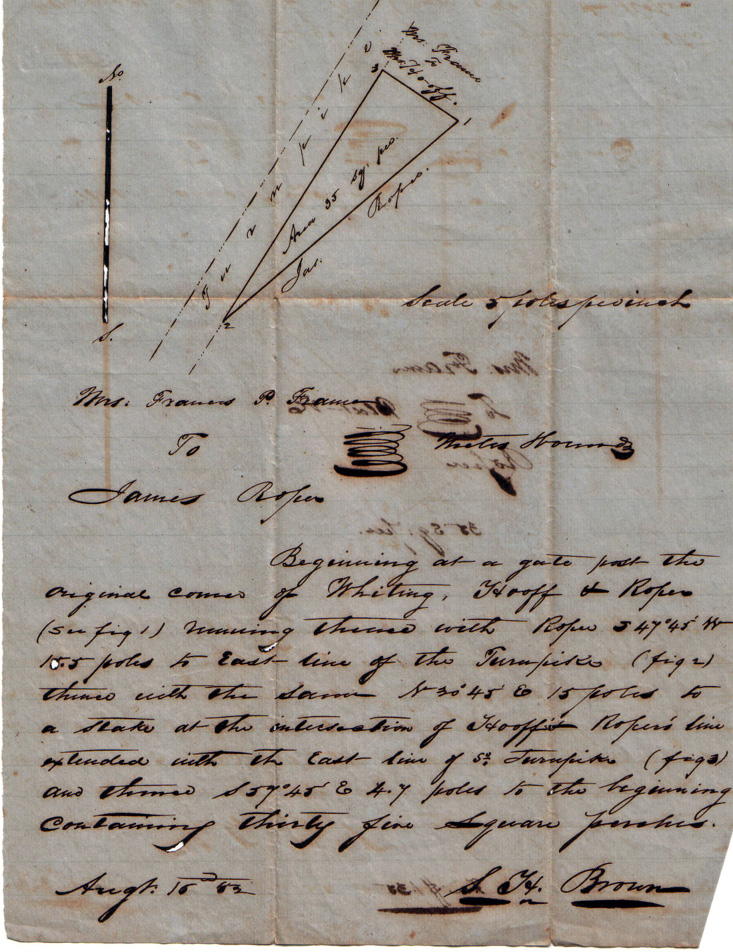 No.
S.
Turnpike
Mrs. Frame
To
Mr. Hooff.
3
1
2
Area 35 sq. per.
Jas. Roper.
Scale 5 poles per inch
Mrs: Frances P. Frame
To
James Roper
Beginning at a gate post the
original corner of Whiting, Hooff & Roper
(see fig 1) running thence with Roper S 47°45' W
15.5 poles to East line of the Turnpike (fig 2)
thence with the same N 30°45' E 15 poles to
a stake at the intersection of Hooff & Roper's line
extended with the East line of sd. Turnpike (fig 3)
and thence S 57°45' E 4.7 poles to the beginning
Containing thirty five Square perches.
Augt. 15
S. H. Brown